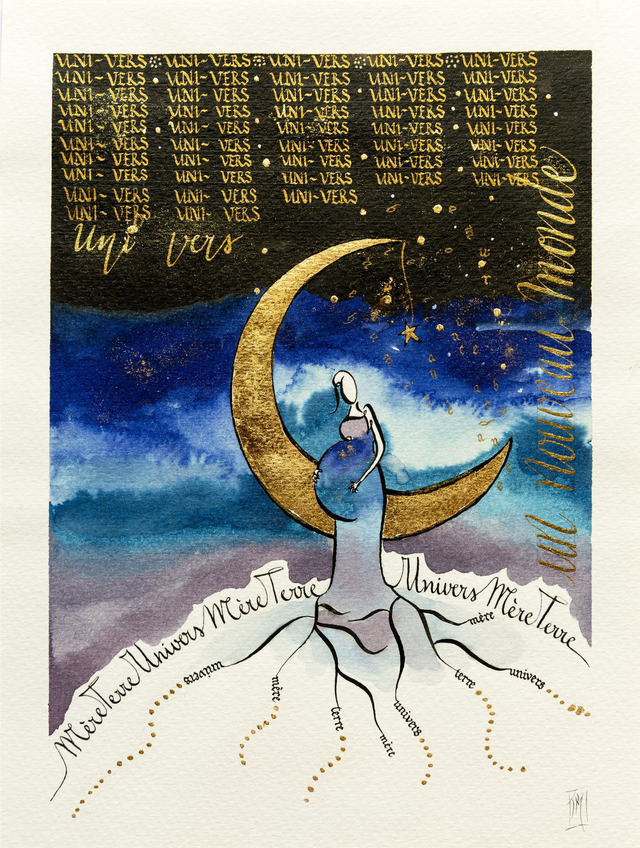 UNI-VERS UNI-VERS UNI-VERS UNI-VERS UNI-VERS
UNI-VERS UNI-VERS UNI-VERS UNI-VERS UNI-VERS
UNI-VERS UNI-VERS UNI-VERS UNI-VERS UNI-VERS
UNI-VERS UNI-VERS UNI-VERS UNI-VERS UNI-VERS
UNI-VERS UNI-VERS UNI-VERS UNI-VERS UNI-VERS
UNI-VERS UNI-VERS UNI-VERS UNI-VERS UNI-VERS
UNI-VERS UNI-VERS UNI-VERS UNI-VERS UNI-VERS
UNI-VERS UNI-VERS UNI-VERS UNI-VERS UNI-VERS
UNI-VERS UNI-VERS UNI-VERS
UNI-VERS UNI-VERS
Uni vers
un nouveau monde
Mère Terre Univers Mère Terre
Univers Mère Terre
univers
mère
terre
mère
univers
mère
terre
univers